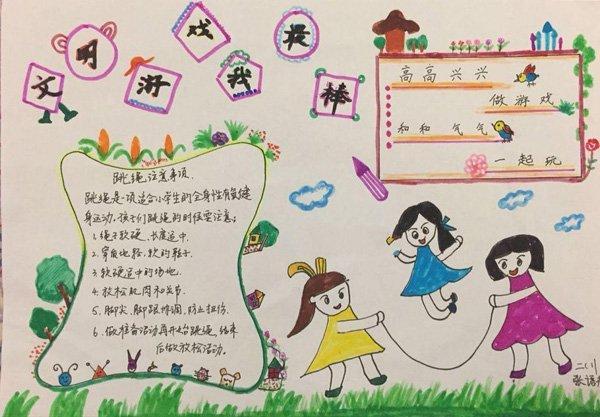 文明游戏我最棒
高高兴兴
做游戏
和和气气
一起玩
跳绳注意事项
跳绳是一项适合小学生的全身性有氧健
身运动。孩子们跳绳的时候要注意：
1、绳子软硬、长度适中．
2、穿质地轻、软的鞋子．
3、软硬适中的场地．
4、放松肌肉和关节．
5、脚尖、脚跟协调，防止扭伤．
6、做准备活动再开始跳绳，结束
后做放松活动。
二（1）
张语